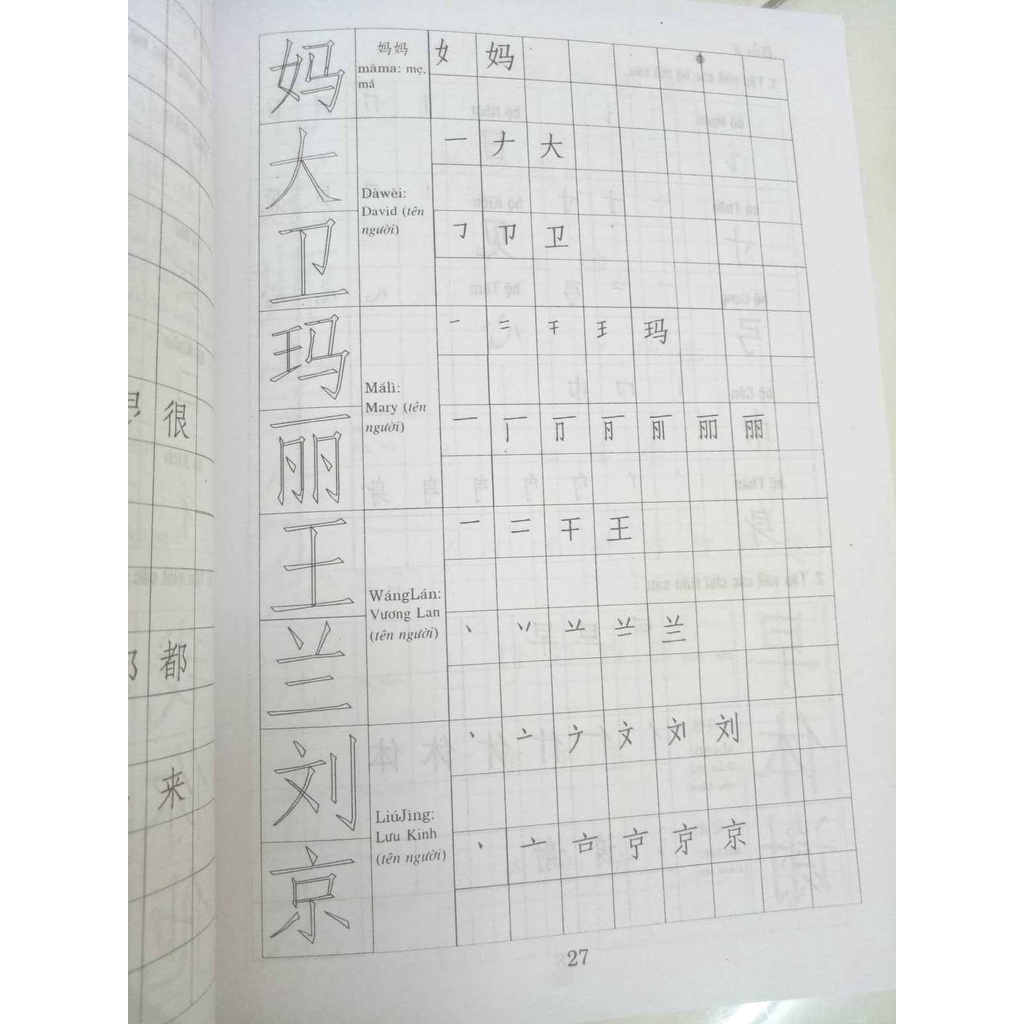 妈
妈妈
māma: mẹ,
má
女 妈
大
卫
Dàwèi:
David (tên
người)
一 ナ 大
卫
玛
丽
Málì:
Mary (tên
người)
一 二 干 王 玛
一 丽
王
兰
WángLán:
Vương Lan
(tên người)
一 二 干 王
丶 丷 䒑 兰
刘
京
LiúJìng:
Lưu Kinh
(tên người)
丶 亠 文 刘
丶 亠 京
很
都
来
27